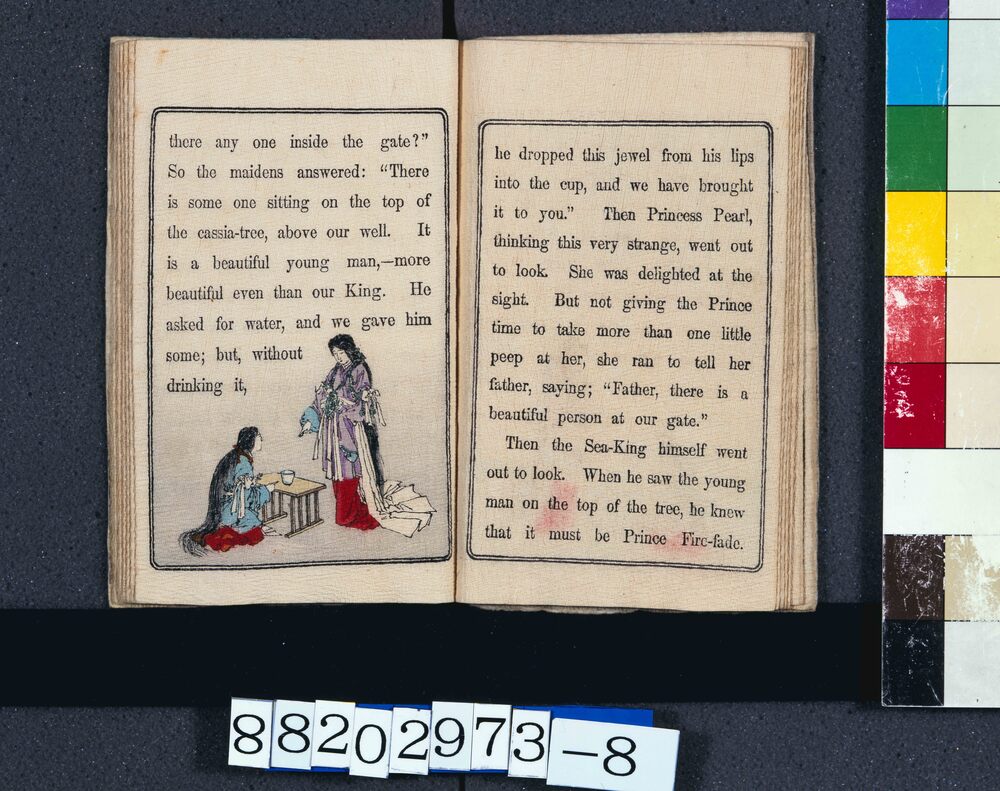 there any one inside the gate?”
So the maidens answered: “There
is some one sitting on the top of
the cassia-tree, above our well. It
is a beautiful young man,—more
beautiful even than our King. He
asked for water, and we gave him
some; but, without
drinking it,
he dropped this jewel from his lips
into the cup, and we have brought
it to you.” Then Princess Pearl,
thinking this very strange, went out
to look. She was delighted at the
sight. But not giving the Prince
time to take more than one little
peep at her, she ran to tell her
father, saying; “Father, there is a
beautiful person at our gate.”
Then the Sea-King himself went
out to look. When he saw the young
man on the top of the tree, he knew
that it must be Prince Fire-fade.
88202973-8